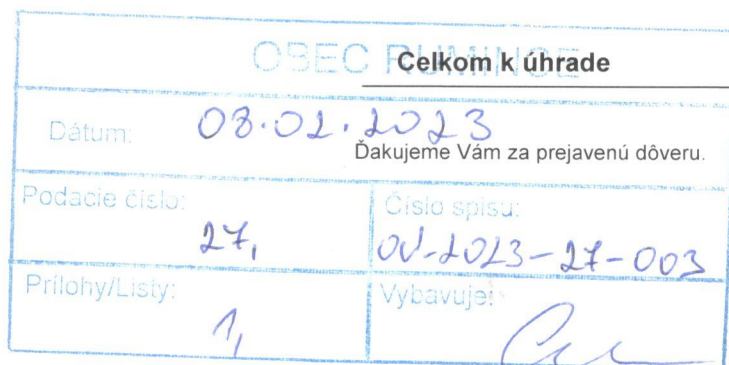 OBEC RUMINCE
Celkom k úhrade
Dátum: 03.02.2023
Ďakujeme Vám za prejavenú dôveru.
Podacie číslo: Číslo spisu:
27, OU-2023-27-003
Prílohy/Listy: Vybavuje:
1,